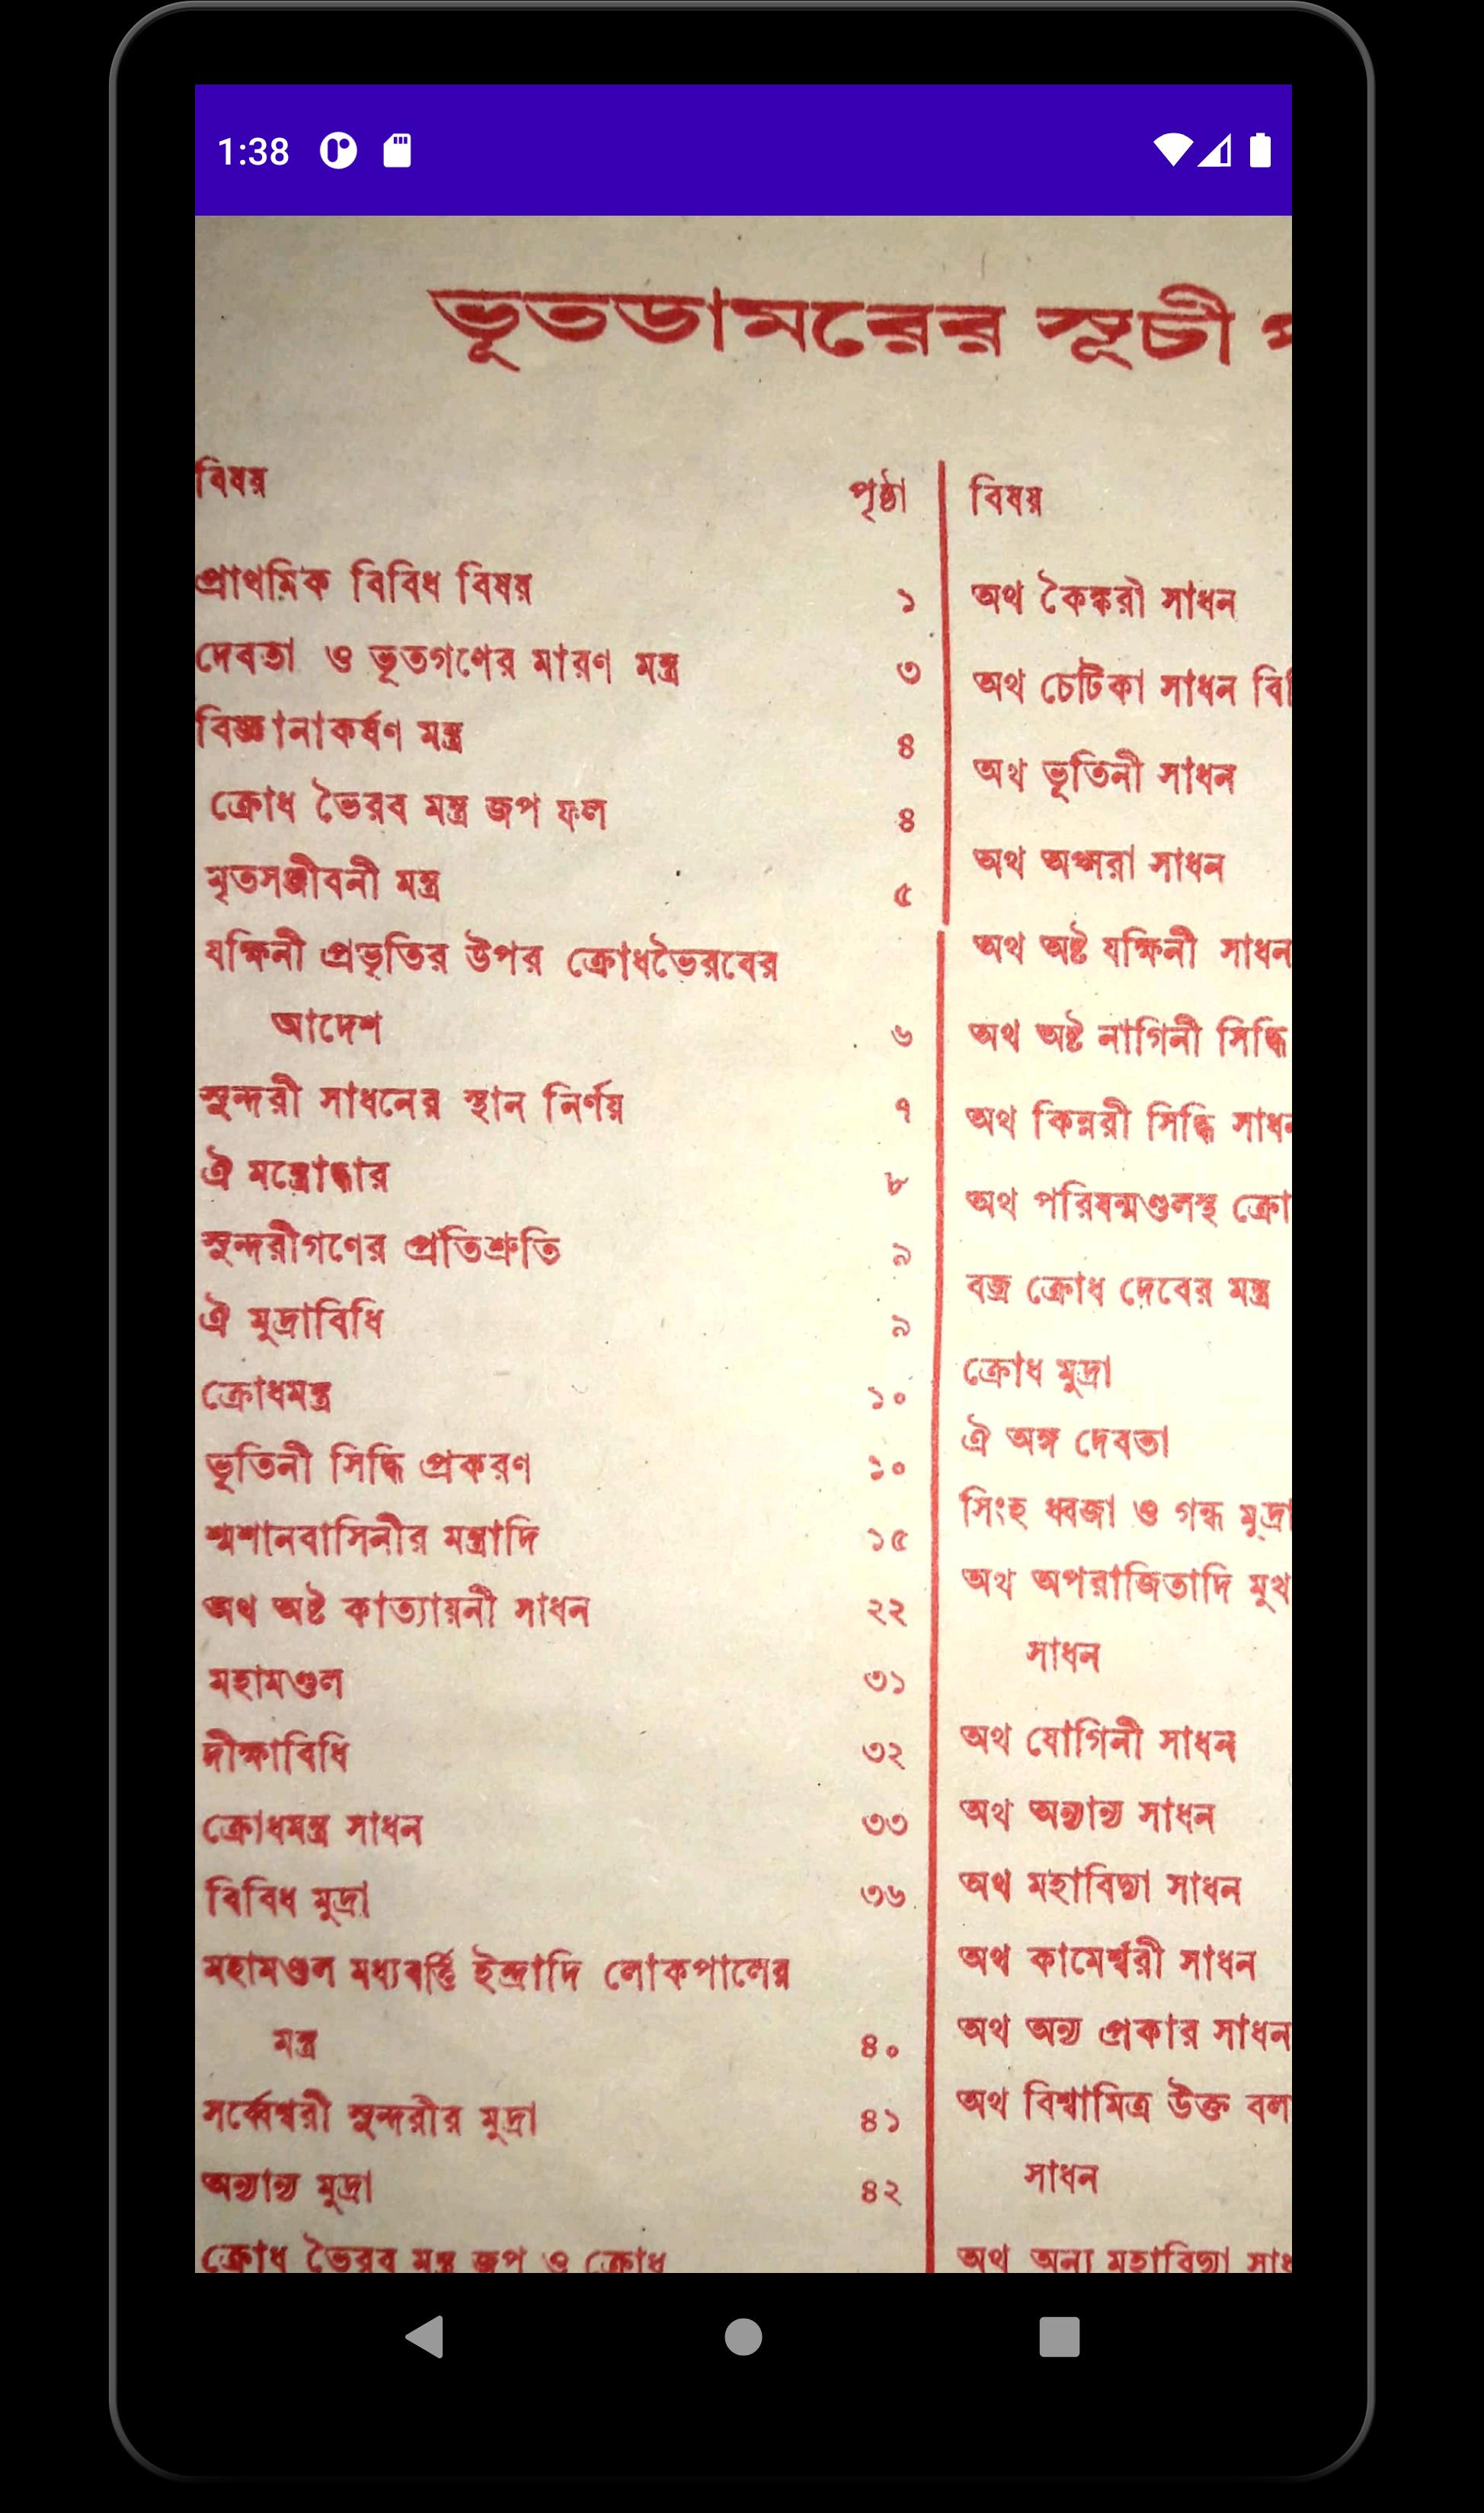 1:38
ভূতডামরের সূচী
বিষয় পৃষ্ঠা
প্রাথমিক বিবিধ বিষয় ১
দেবতা ও ভূতগণের মারণ মন্ত্র ৩
বিজ্ঞানাকর্ষণ মন্ত্র ৪
ক্রোধ ভৈরব মন্ত্র জপ ফল ৪
মৃতসঞ্জীবনী মন্ত্র ৫
যক্ষিনী প্রভৃতির উপর ক্রোধভৈরবের
আদেশ ৬
সুন্দরী সাধনের স্থান নির্ণয় ৭
ঐ মন্ত্রোদ্ধার ৮
সুন্দরীগণের প্রতিশ্রুতি ৯
ঐ মুদ্রাবিধি ৯
ক্রোধমন্ত্র ১০
ভূতিনী সিদ্ধি প্রকরণ ১০
শ্মশানবাসিনীর মন্ত্রাদি ১৫
অথ অষ্ট কাত্যায়নী সাধন ২২
মহামণ্ডল ৩১
দীক্ষাবিধি ৩২
ক্রোধমন্ত্র সাধন ৩৩
বিবিধ মুদ্রা ৩৬
মহামণ্ডল মধ্যবর্ত্তি ইন্দ্রাদি লোকপালের
মন্ত্র ৪০
সর্ব্বেশ্বরী সুন্দরীর মুদ্রা ৪১
অন্যান্য মুদ্রা ৪২
ক্রোধ ভৈরব মন্ত্র জপ ও ক্রোধ
বিষয়
অথ কৈঙ্করী সাধন
অথ চেটিকা সাধন
অথ ভূতিনী সাধন
অথ অপ্সরা সাধন
অথ অষ্ট যক্ষিনী সাধন
অথ অষ্ট নাগিনী সিদ্ধি
অথ কিন্নরী সিদ্ধি সাধন
অথ পরিষন্মণ্ডলস্থ
বজ্র ক্রোধ দেবের মন্ত্র
ক্রোধ মুদ্রা
ঐ অঙ্গ দেবতা
সিংহ ধ্বজা ও গন্ধ মুদ্রা
অথ অপরাজিতাদি
সাধন
অথ যোগিনী সাধন
অথ অন্যান্য সাধন
অথ মহাবিদ্যা সাধন
অথ কামেশ্বরী সাধন
অথ অন্য প্রকার সাধন
অথ বিশ্বামিত্র উক্ত
সাধন
অথ অন্য মহাবিদ্যা